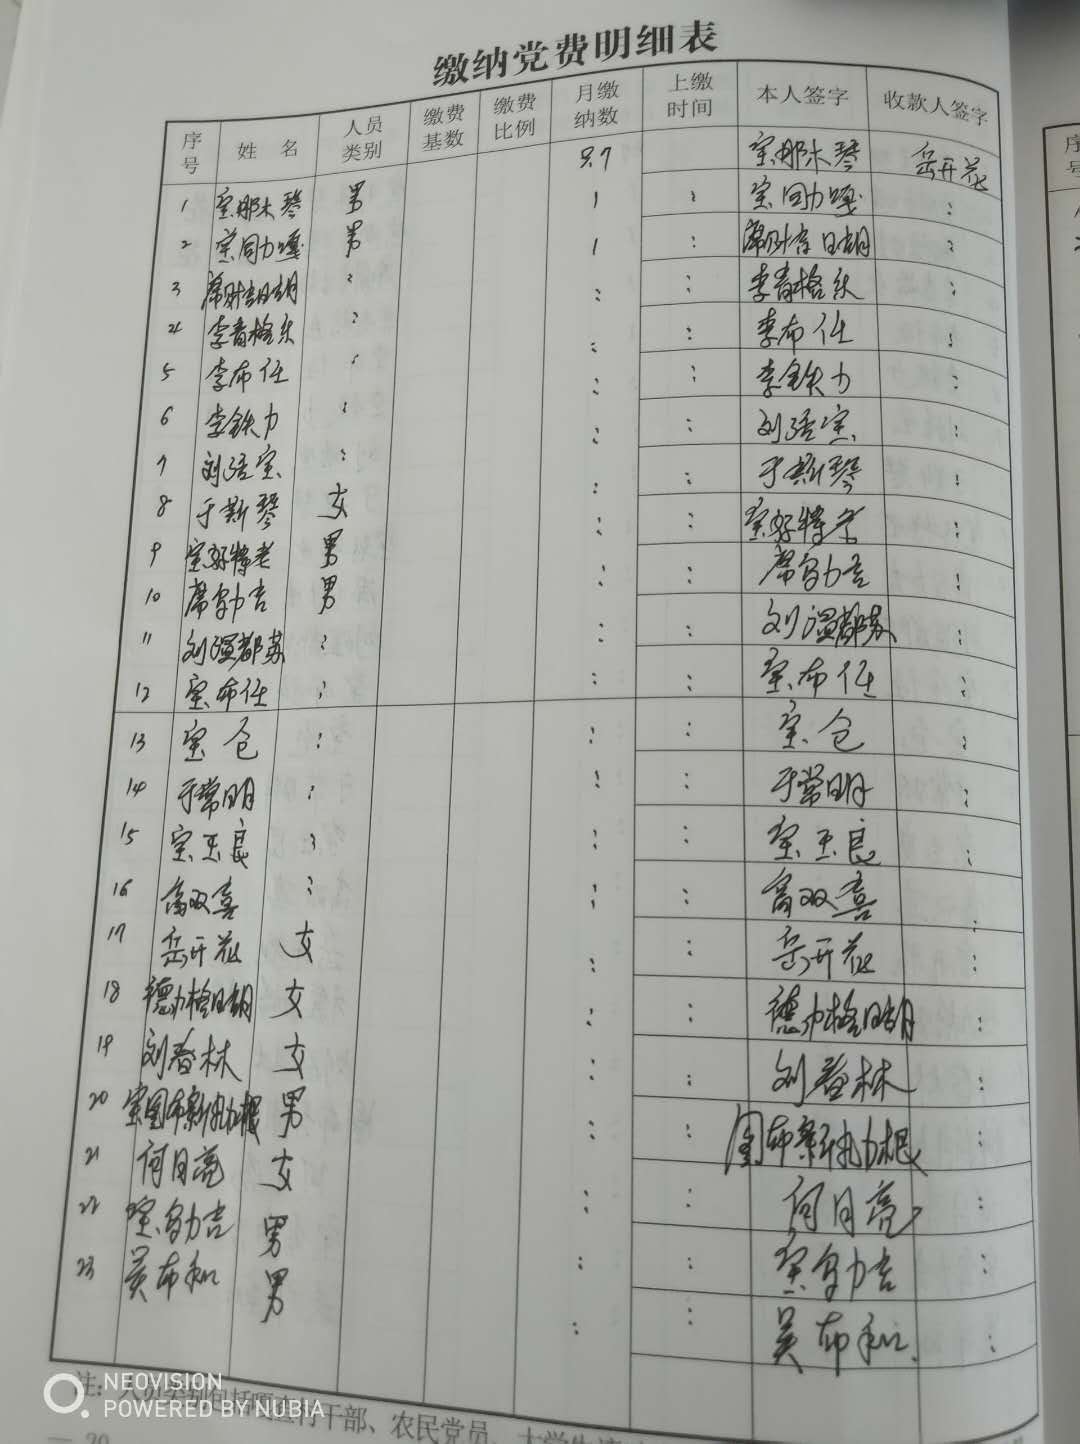 缴纳党费明细表
序号 姓 名 人员类别 缴费基数 缴费比例 月缴纳数 上缴时间 本人签字 收款人签字
1 宝那木琴 男 宝那木琴 岳开花
2 宝同力嘎 男 1 宝同力嘎
3 席财吉日胡 1
4 李青格乐 李青格乐
5 李布仁 李布仁
6 李铁力 李铁力
7 刘活宝 刘活宝
8 于斯琴 女 于斯琴
9 宝好特老 男 宝好特老
10 席乌力吉 男 席乌力吉
11 刘温都苏 刘温都苏
12 宝布仁 宝布仁
13 宝仓 宝仓
14 于常明 于常明
15 宝玉良 宝玉良
16 高双喜 高双喜
17 岳开花 女 岳开花
18 德力格日胡 女 德力格日胡
19 刘春林 女 刘春林
20 宝图布新扎力根 男 图布新扎力根
21 何月亮 女 何月亮
22 宝乌力吉 男 宝乌力吉
23 吴布和 男 吴布和
注：人员类别包括嘎查村干部、农民党员、大学生
NEOVISION
POWERED BY NUBIA